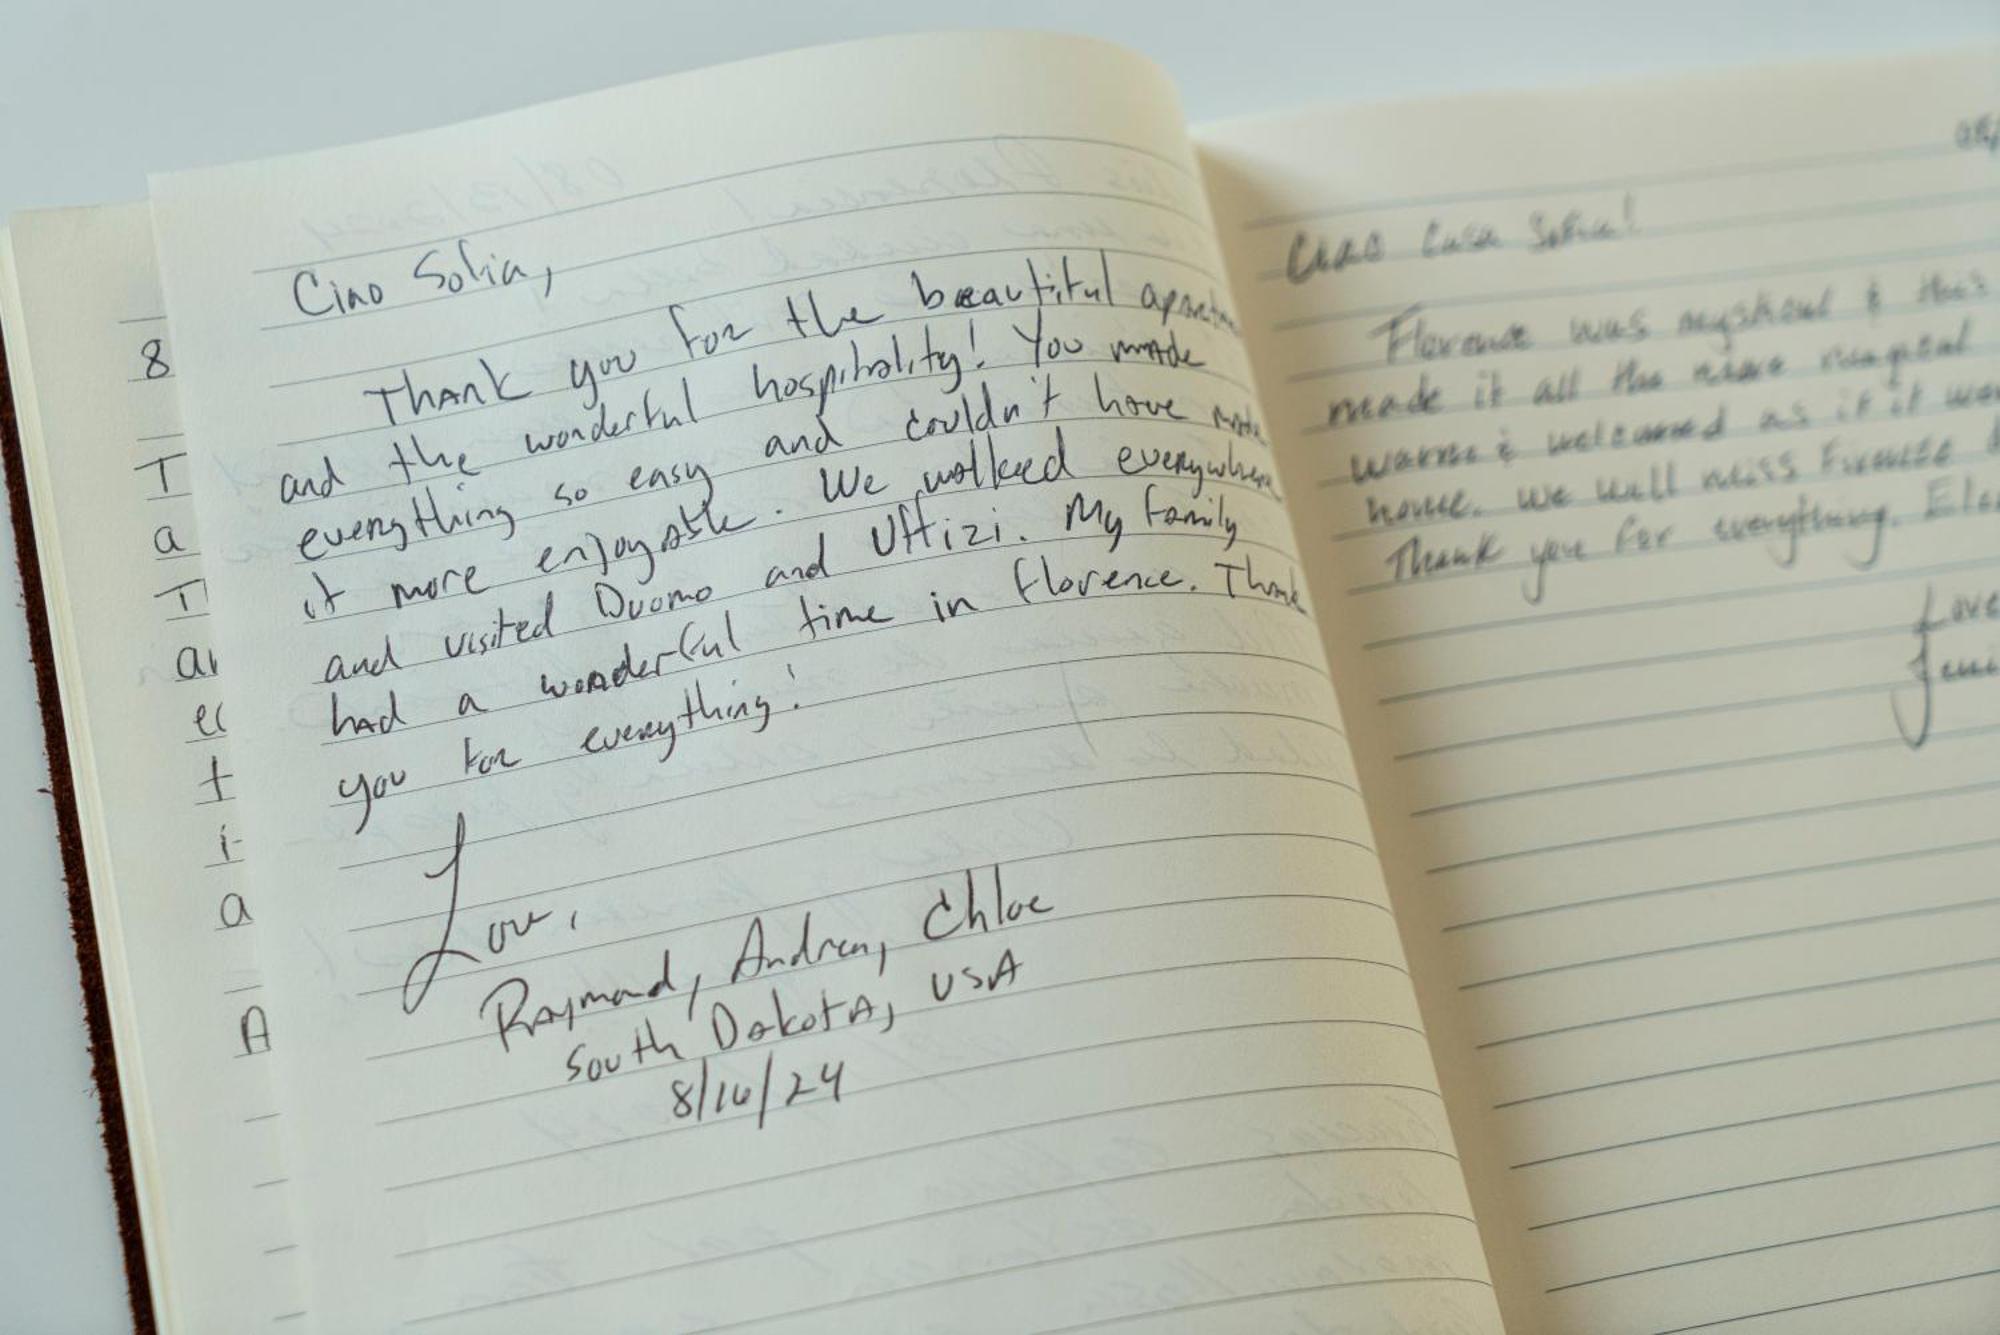 Ciao Sofia,
Thank you for the beautiful
and the wonderful hospitality! You made
everything so easy and couldn't have made
it more enjoyable. We walked everywhere
and visited Duomo and Uffizi. My family
had a wonderful time in Florence. Thank
you for everything!
Love,
Raymond, Andrea, Chloe
South Dakota, USA
8/16/24
8
T
a
T
a
t
a
A
Ciao Casa Sofia!
Florence was mystical & this
made it all the more magical
warm & welcomed as if it
home. We will miss Firenze
Thank you for everything.
Love